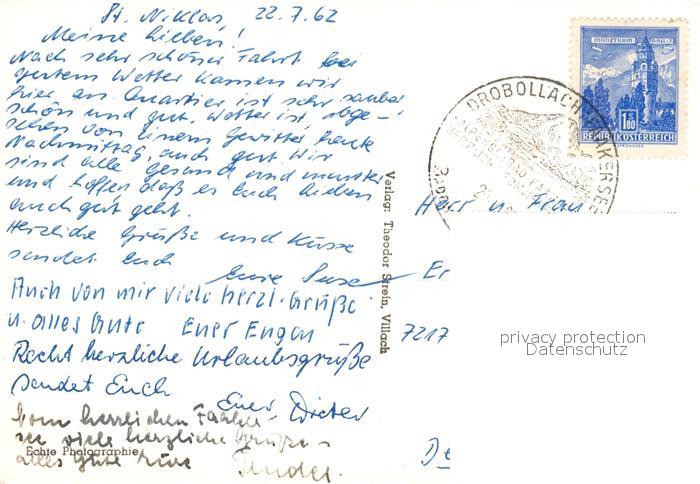 St. Niklas 22.7.62
Meine Lieben!
Nach sehr schöner Fahrt bei
gutem Wetter kamen wir
hier an. Quartier ist sehr sauber
schön und gut. Wetter ist, abge-
sehen von einem Gewitter heute
Nachmittag, auch gut. Wir
sind alle gesund und munter
und hoffen daß es Euch Lieben
auch gut geht.
Herzliche Grüße und Küsse
sendet Euch
Eure Suse
Auch von mir viele herzl. Grüße
u. alles Gute Euer Eugen
Recht herzliche Urlaubsgrüße
sendet Euch
Euer Dieter
Vom herrlichen Faaker-
see viele herzliche Grüße
alles Gute
Echte Photographie
Verlag: Theodor Strein, Villach
MÜNZTURM HALL I.T.
S 1.80
REPUBLIK ÖSTERREICH
DROBOLLACH FAAKERSEE
Herr u. Frau
Er
7217
De
privacy protection
Datenschutz